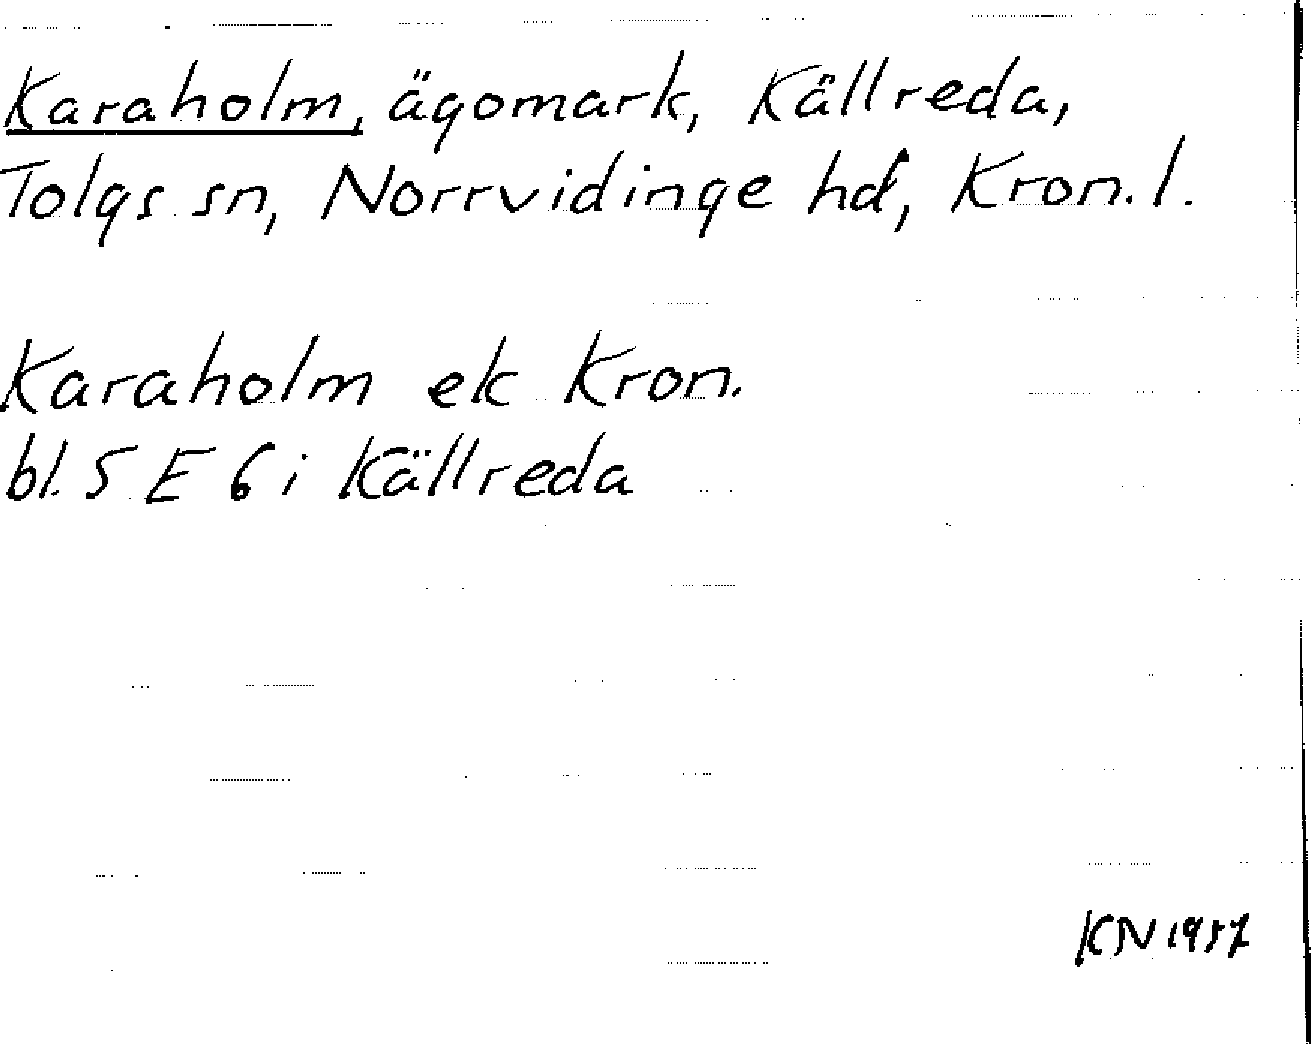 Karaholm, ägomark, Källreda,
Tolgs sn, Norrvidinge hd, Kron. l.
Karaholm ek Kron.
bl. 5 E 6 i Källreda
KN 1957